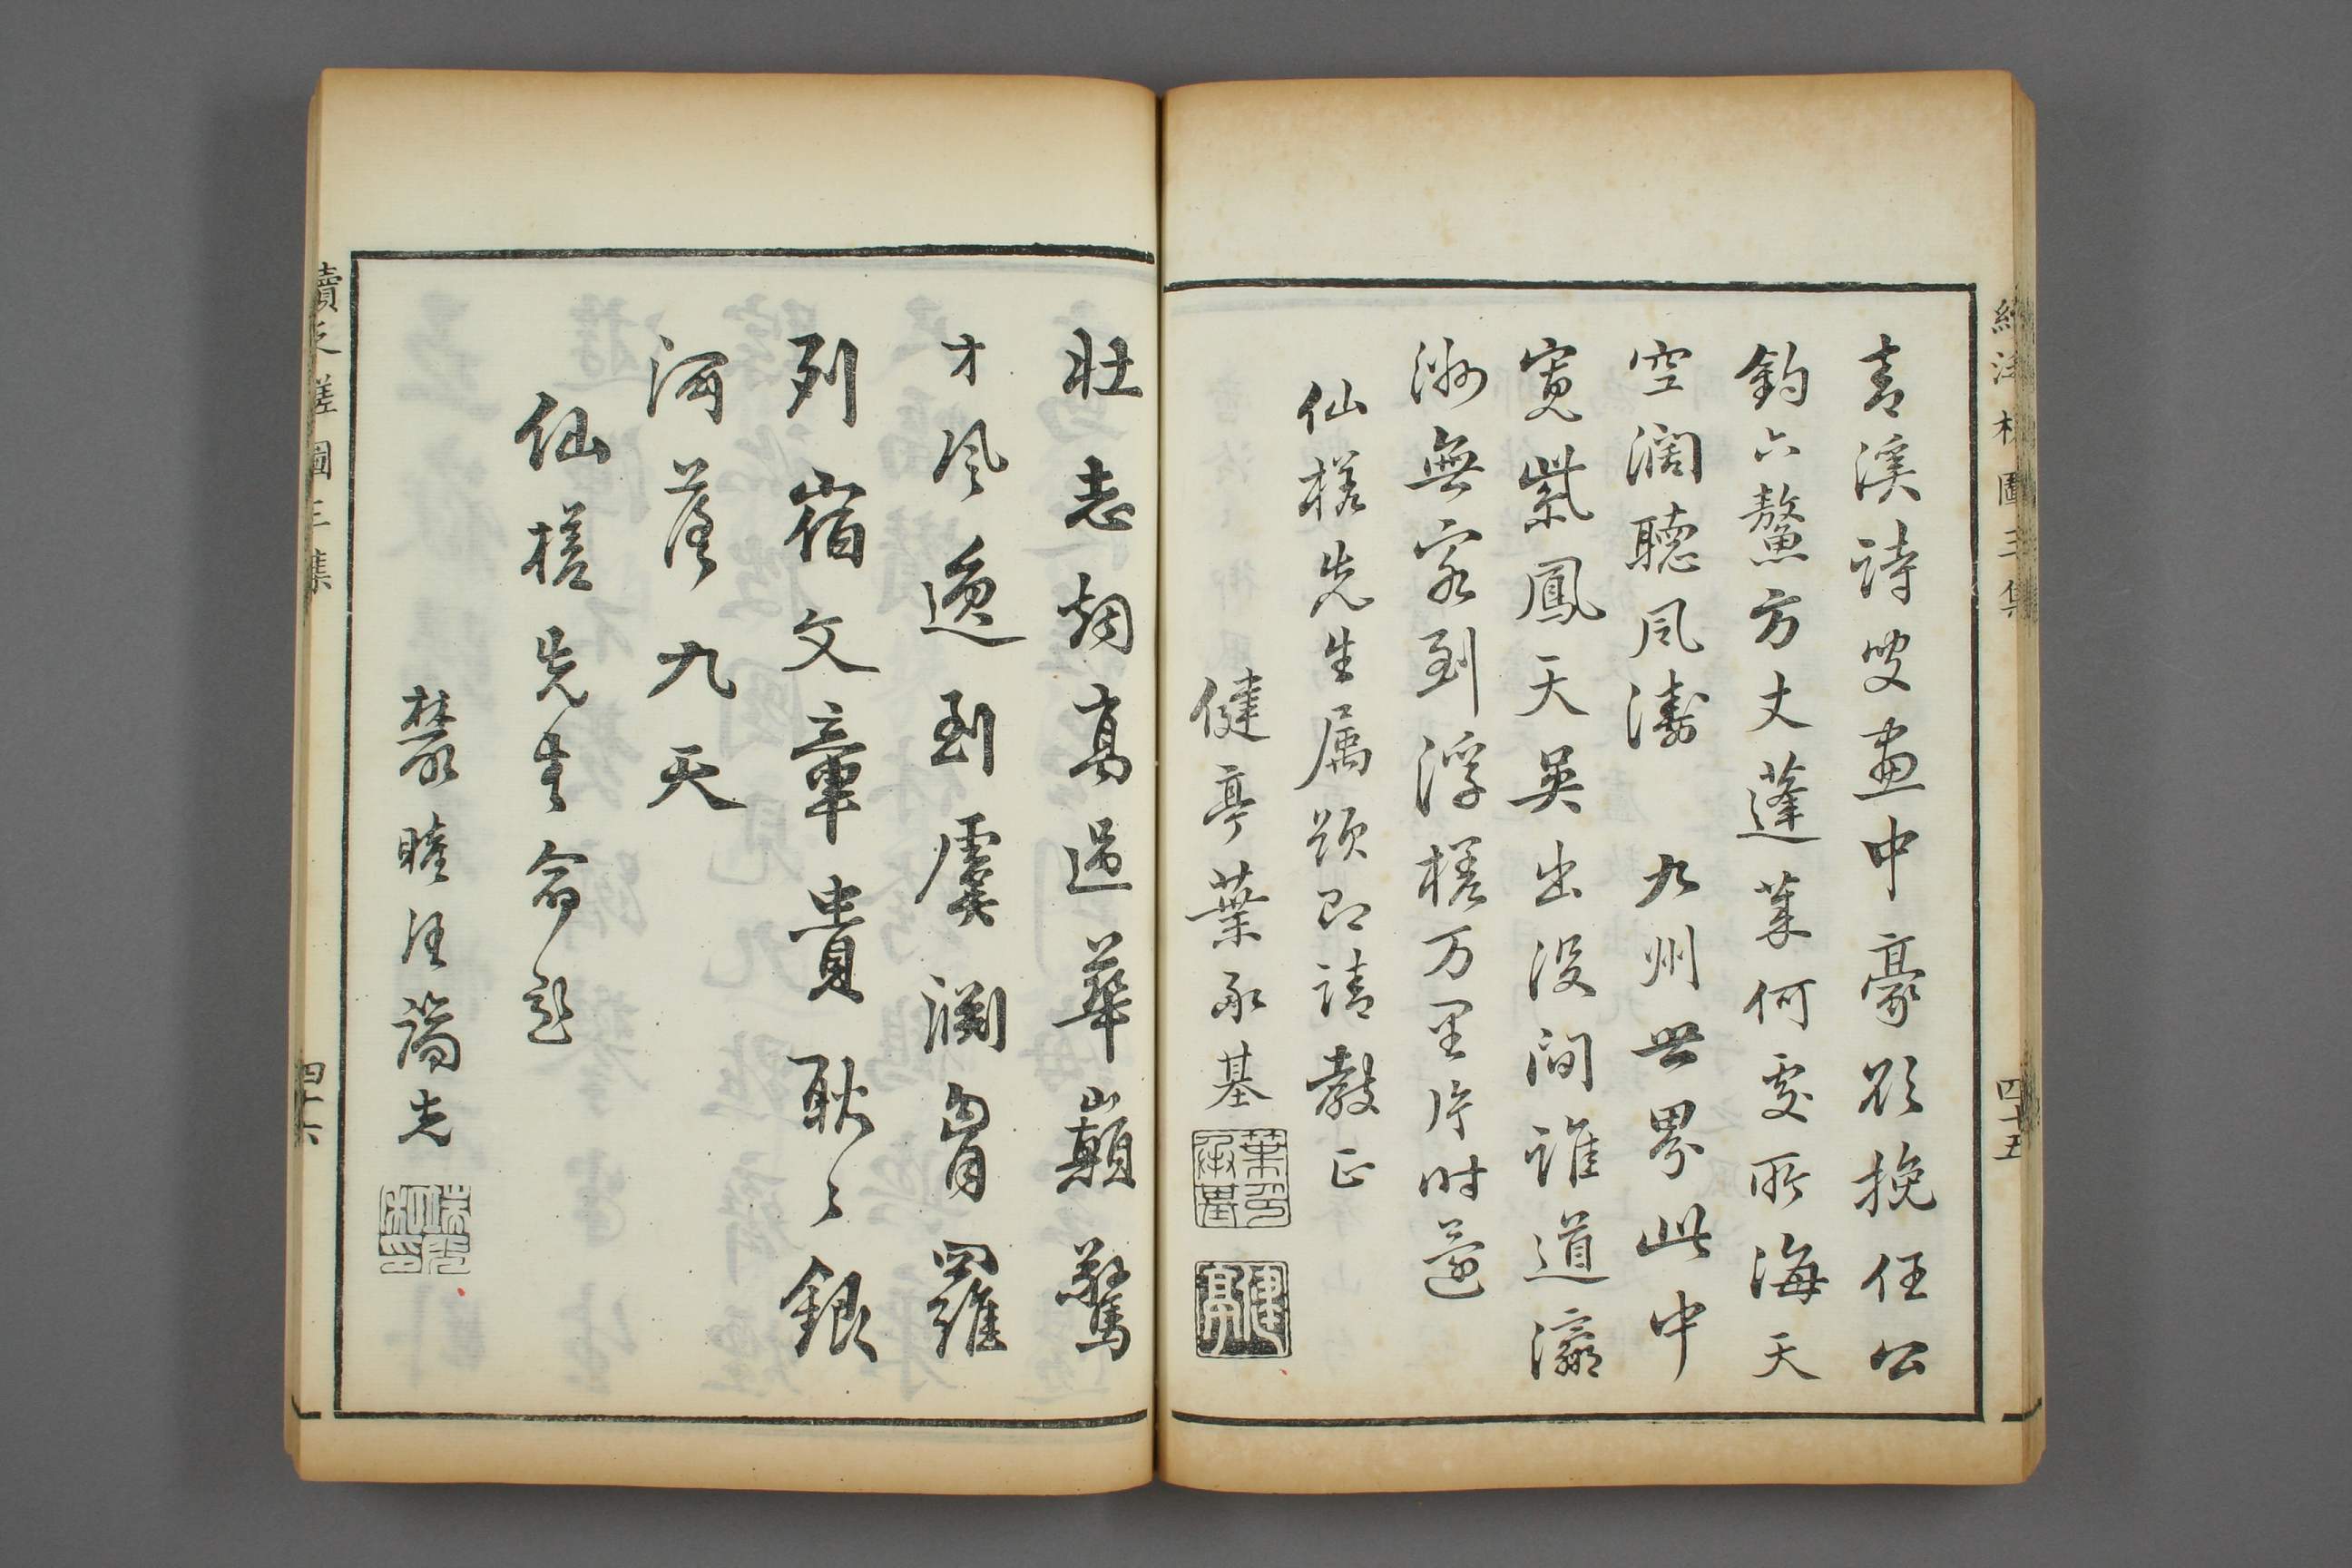 續泛槎圖三集
四十五
青溪詩叟畫中豪欲挽任公
釣六鰲方丈蓬萊何處所海天
空濶聽風濤 九州世界此中
寬紫鳳天吳出没間誰道瀛
洲無客到浮槎万里片时還
仙槎先生属題即請教正
健亭葉承基
葉承基印
健亭
壯志翔高過華巔驚
才风逸到虞淵胷羅
列宿文章貴耿〻銀
河落九天
仙槎先生命題
叢睦汪
四十六
續泛槎圖三集